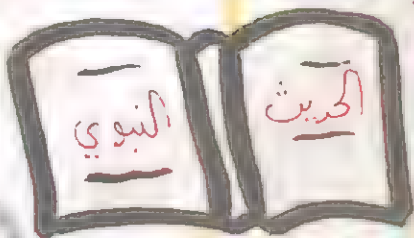 الحديث
النبوي